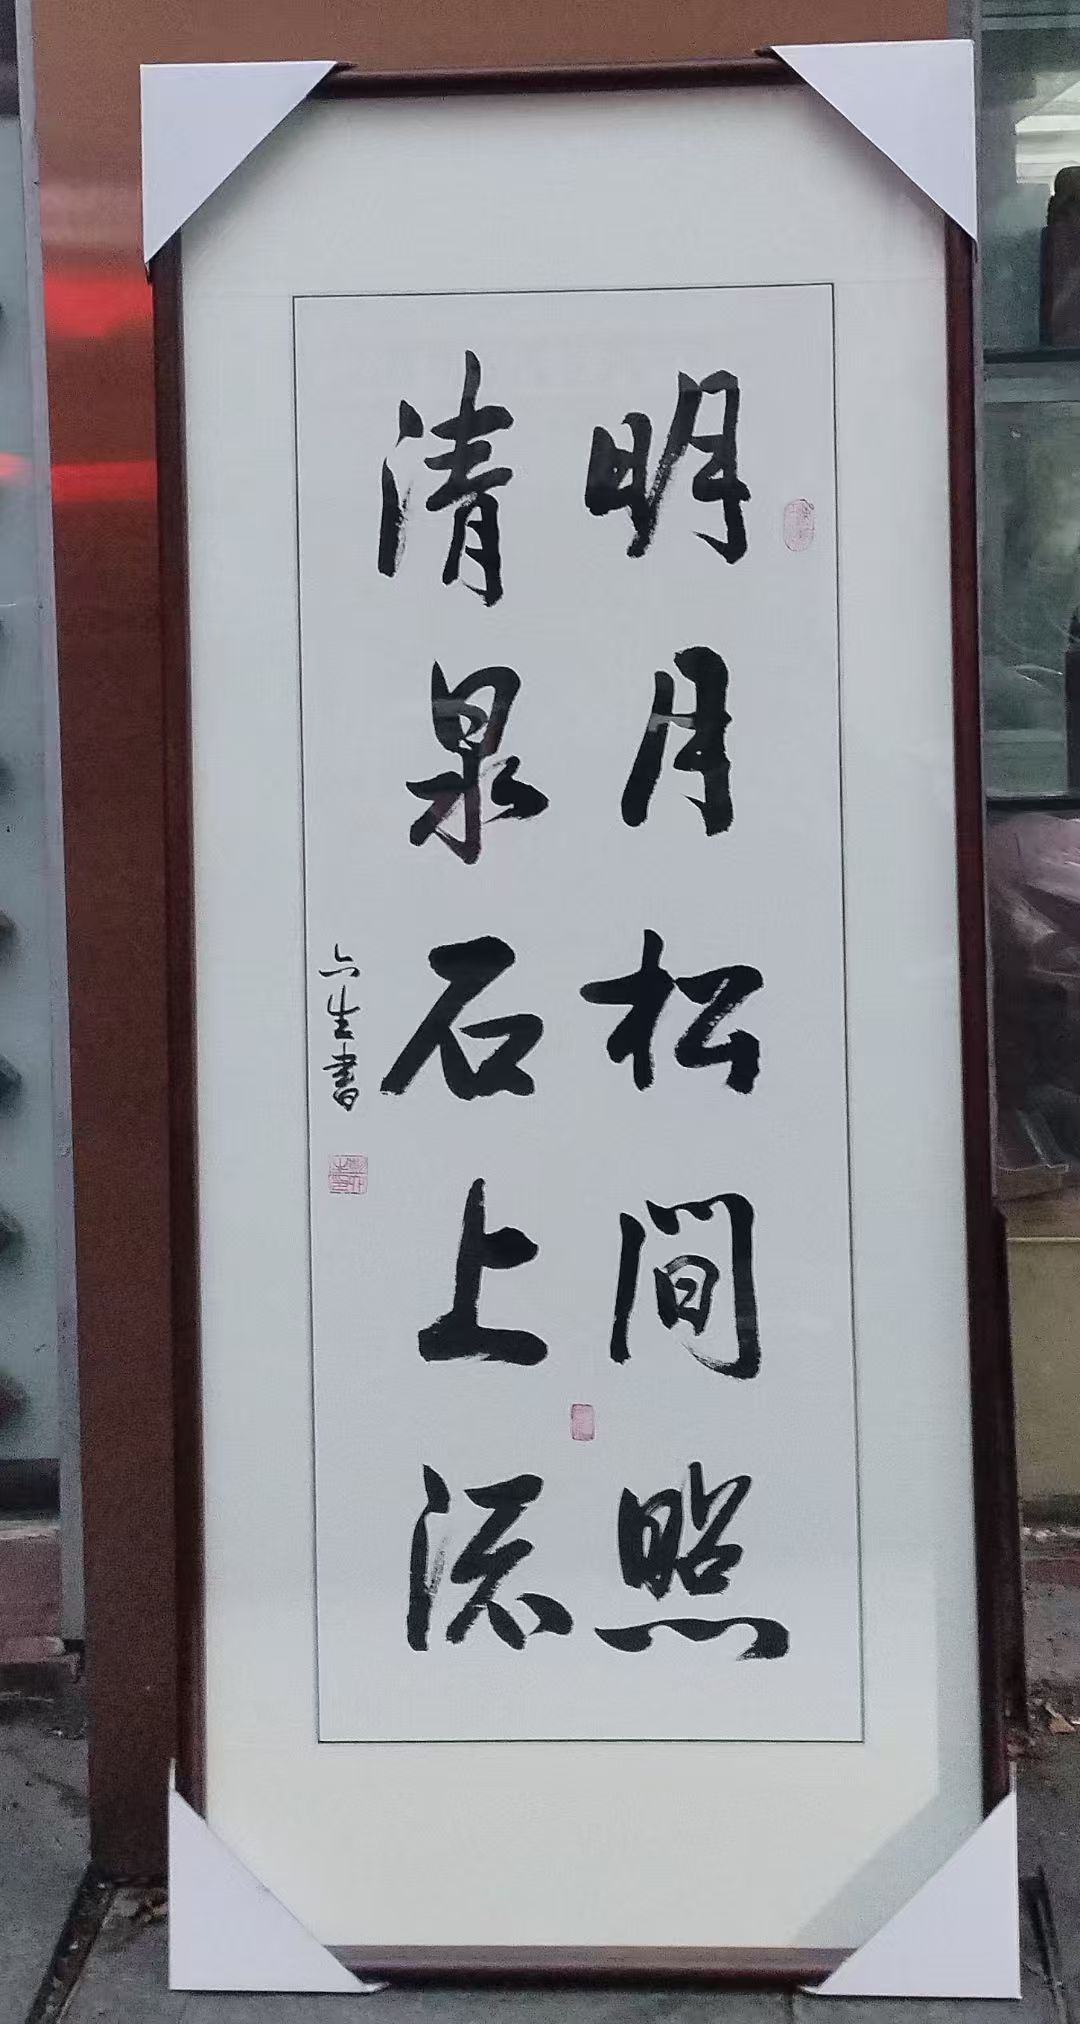 明月松間照
清泉石上流
六生書